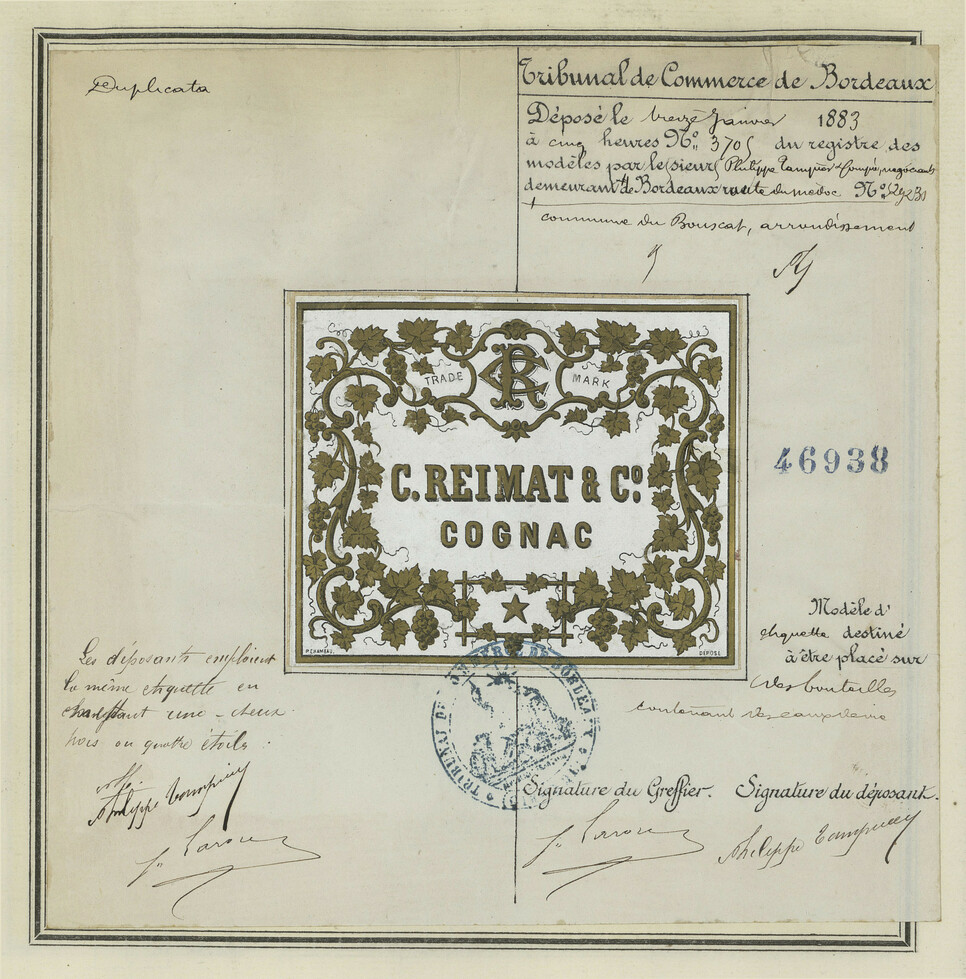 Duplicata
Tribunal de Commerce de Bordeaux
Déposé le treize Janvier 1883
à cinq heures Nº 3705 du registre des
modèles par le(sieur) Philippe & Compie, négociants
demeurant à Bordeaux route du médoc Nº
commune du Bouscat, arrondissement
TRADE
CR
MARK
C. REIMAT & Cº.
COGNAC
DÉPOSÉ
46938
Modèle d'
étiquette destiné
à être placé sur
des bouteilles
contenant des eaux de vie
Les déposants emploient
la même étiquette en
une - deux
trois ou quatre étoiles :
Philippe
TRIBUNAL DE COMMERCE DE BORDEAUX
Signature du Greffier.
Signature du déposant.
Philippe